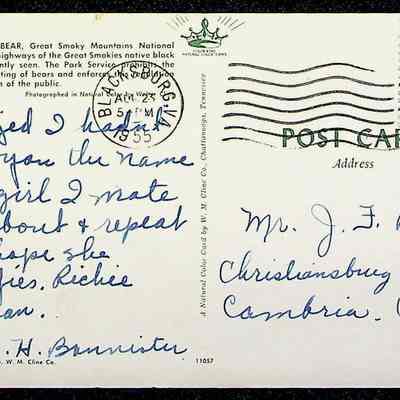 BEAR, Great Smoky Mountains National
highways of the Great Smokies native black
ently seen. The Park Service prohibits the
ting of bears and enforces this regulation
n of the public.
Photographed in Natural Color by
BLACKSBURG, VA.
23
5 PM
1955
I hadn't
you the name
girl I mate
about & repeat
hope she
Richie
an.
H. Bannister
W. M. Cline Co.
11057
A Natural Color Card by W. M. Cline Co., Chattanooga, Tennessee
POST CAR
Address
Mr. J. F.
Christiansburg
Cambria,